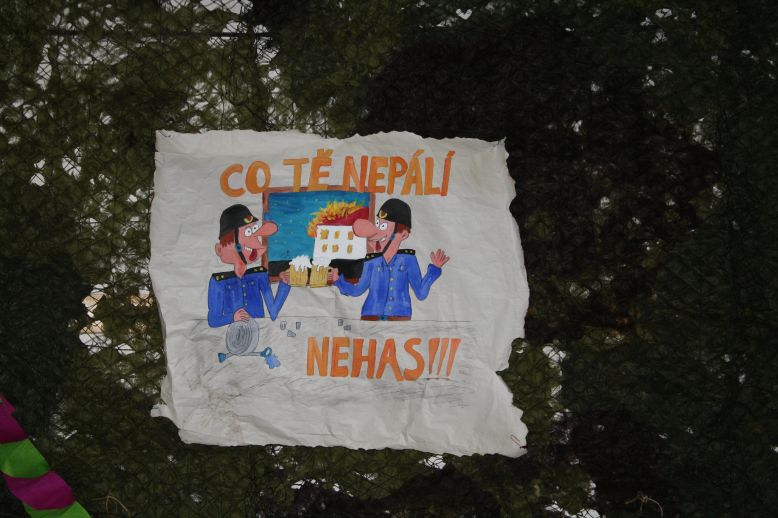 CO TĚ NEPÁLÍ
NEHAS!!!